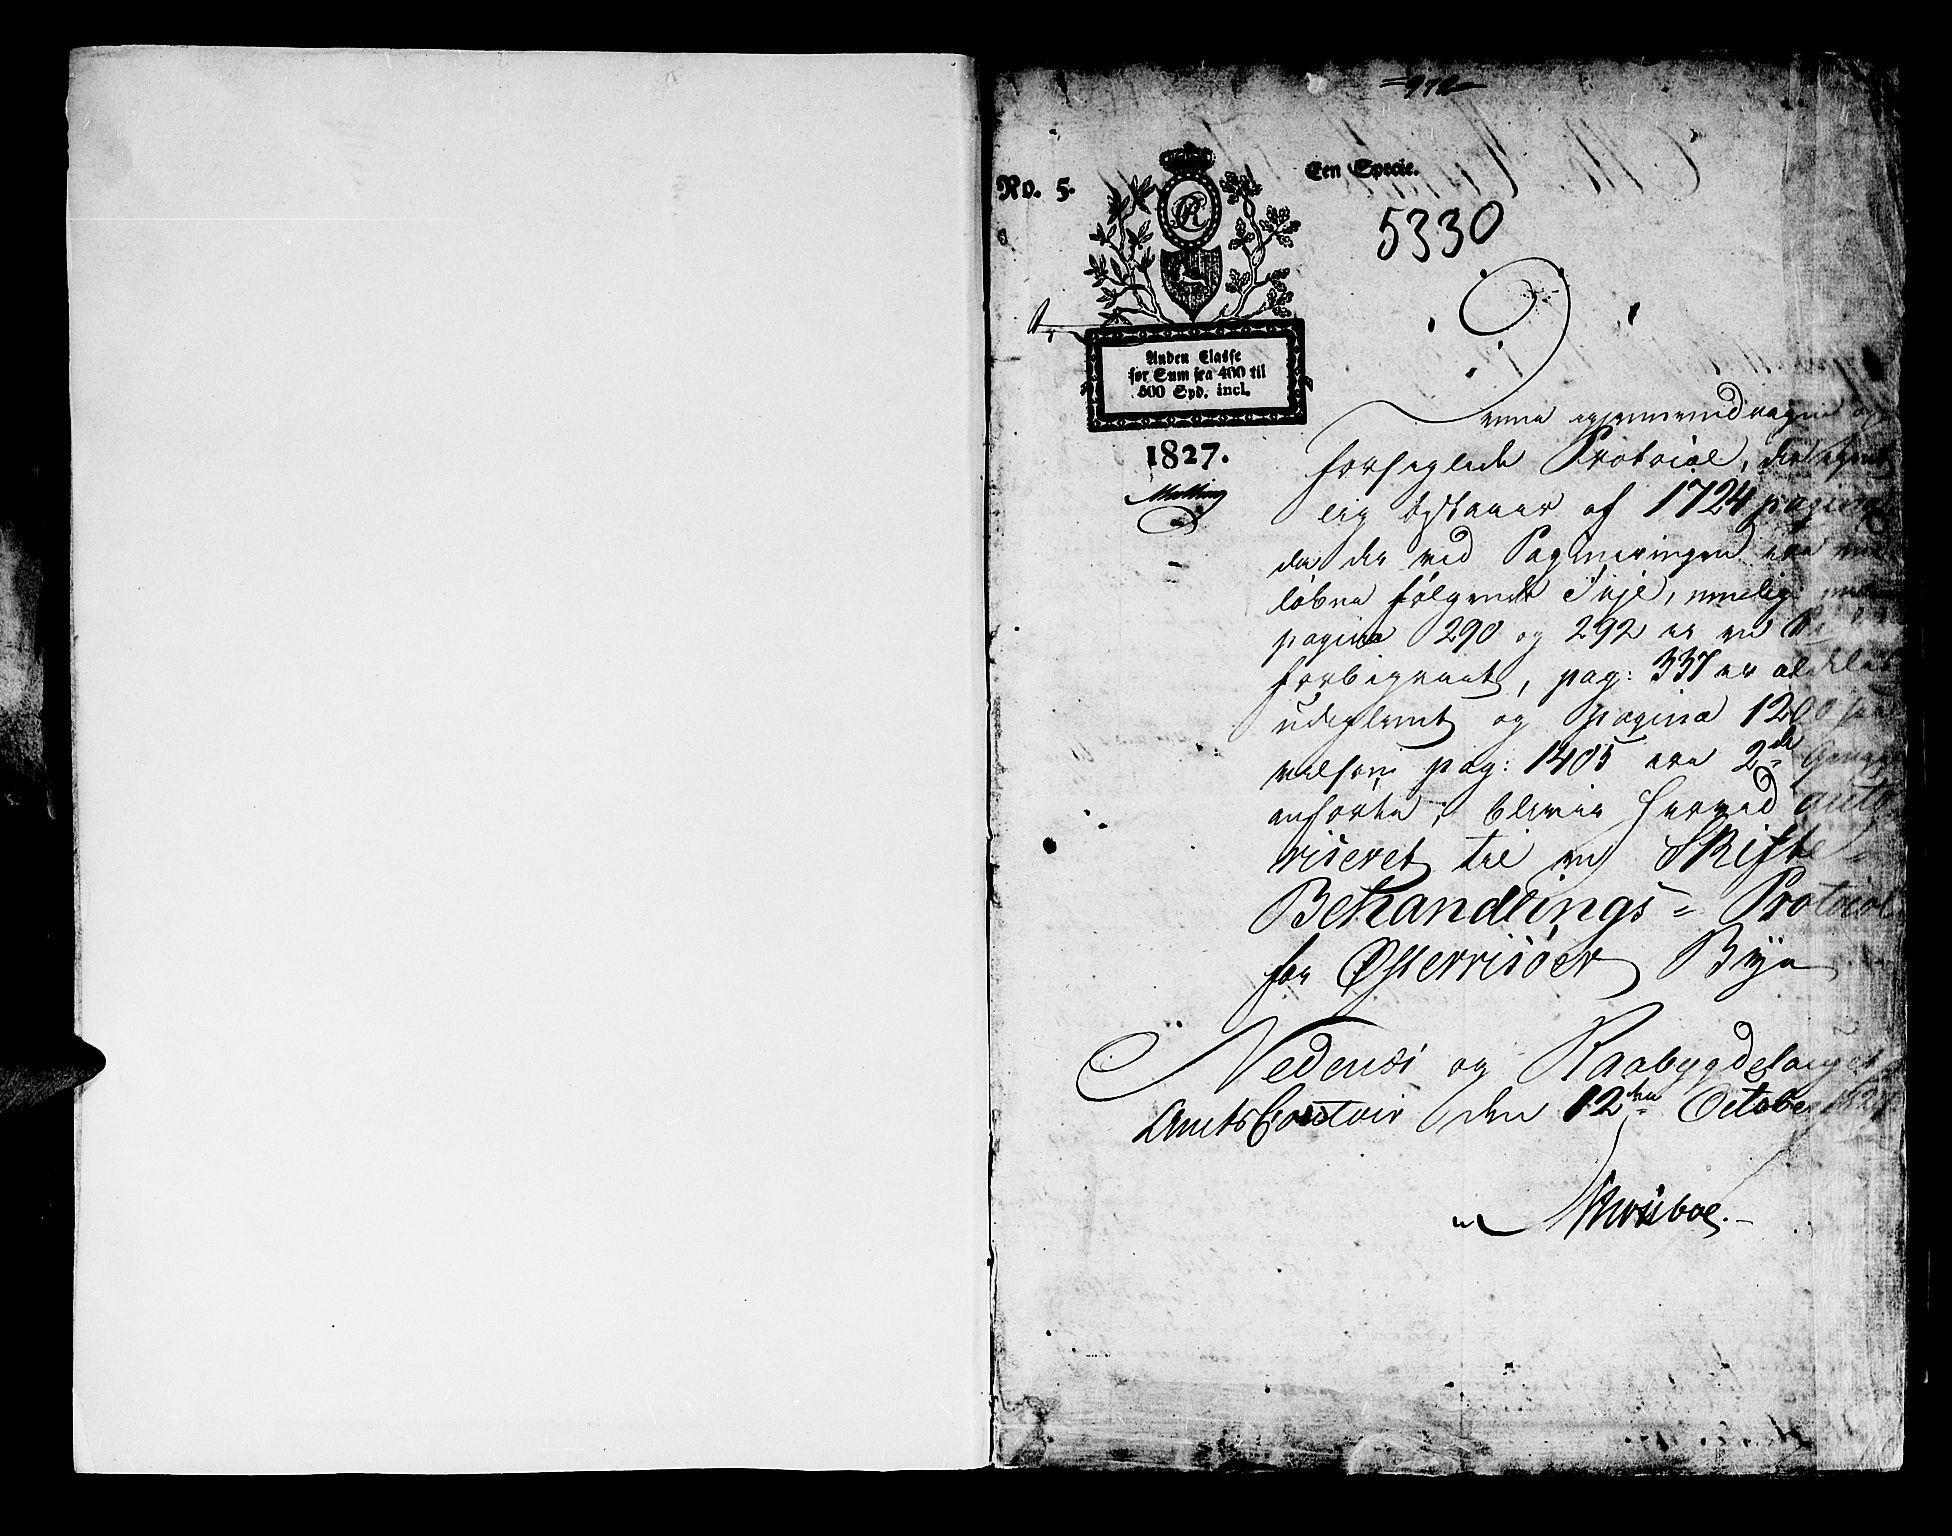 No. 5.
Een Specie.
5330
Anden Classe
for Sum fra 400 til
500 Spd. incl.
1827.
Denne igjennemdragne og
forseglede Protocol, der egent
lig bestaaer af 1724 pagina
da der ved Pagineringen ere
løbne følgende Feil, nemlig:
pagina 290 og 292 er en
forbigaaet, pag: 337 er
udeglemt og pagina 1200 saa
velsom pag: 1405 ere 2de Gange
anførte, bliver herved auto
riseret til en Skifte
Behandlings= Protocol
for Østerrisøer Bye
Nedenæs og Raabygdelaugets
Amts Contoir den 12te October 1827